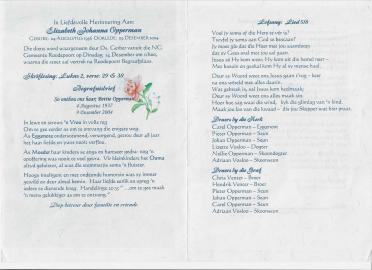 In Liefdevolle Herinnering Aan:
Elizabeth Johanna Opperman
Gebore: 04 Augustus 1932 Oorlede: 09 Desember 2004
Die diens word waargeneem deur Ds. Gerber vanuit die NG
Gemeente Roodepoort op Dinsdag, 14 Desember om
waarna die stoet sal vertrek na Roodepoort Begraafplaas.
Skriflesing: Lukas 2, verse: 29 & 30
Begrafnisbrief
So onthou ons haar, Bettie Opperman
4 Augustus 1932
9 Desember 2004
In lewe en sterwe 'n Vrou in volle reg
Om so gee eerder as om te ontvang die enigste weg.
As Eggenote ondersteunend, versorgend, getrou deur al jare
het haar liefde en
As Moeder haar kinders so
opoffering was nooit te veel gevra. Vir kleinkinders het Ouma
altyd geluister, al was die stemmetjie soms 'n fluister.
Hoogs intelligent en met ondeunde humorsin was sy immer
gewild en deur almal bemin. Haar liefde
ander se dienende brug. Handelinge 20:35 " ....om te gee maak
'n mens gelukkiger as om te ontvang."
Diep betreur deur familie en vriende.
Lofsang: Lied 518
Voel jy soms of die Here so vêr is?
Twyfel jy soms aan God se bestaan?
Jy moet glo dat die Heer met jou saamloop;
dat sy Gees oral met jou sal gaan.
Jesus sê Hy kom weer, Hy kom uit die hemel neer –
Met basuin en gesekal kom Hy al sy mense haal.
Deur sy Woord wees ons Jesus gaan t'rug - keer
na ons wêreld met alles daarin.
Wat gebreek is, sal Jesus kom herbou;
Deur sy Woord weet ons alles maak sin.
Hoor hoe sag waai die wind, kyk die glimlag van 'n kind.
Maak jou los van die kwaad - die jou Skepper was hier jou maat.
Draers by die Kerk
Carol Opperman - Eggenoot
Pieter Opperman - Seun
Johan Opperman - Seun
Lizette Vosloo - Dogter
Nellie Opperman - Skoondogter
Adriaan Vosloo - Skoonseun
Draers by die Graf
Chris Venter - Broer
Hendrik Venter - Broer
Pieter Opperman - Seun
Johan Opperman - Seun
Carel Opperman - Seun
Adriaan Vosloo - Skoonseun